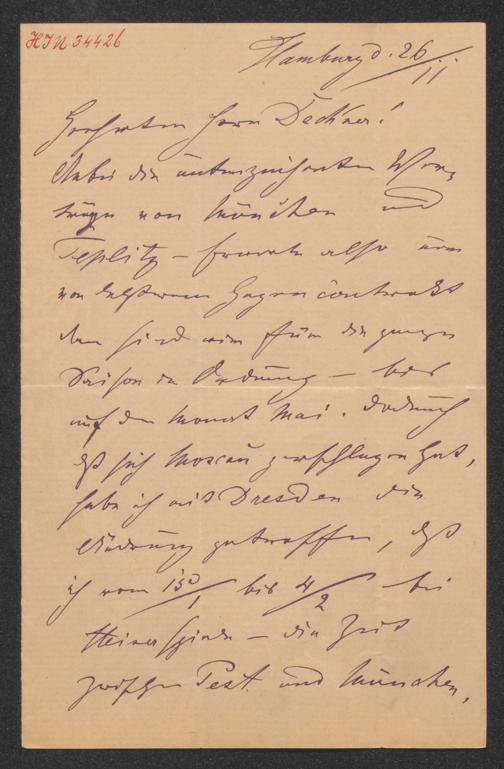 HIN 34426
Hamburg d. 26/11
Geehrter Herr Dechner!
Anbei die unterzeichneten Ver-
träge von München und
Teplitz – Erwarte also nur
von letzterem Gegencontrakt
dann sind wir für die ganze
Saison in Ordnung – bis
auf den Monat Mai. Dadurch
daß sich Moscau zerschlagen hat,
habe ich mit Dresden die
Änderung getroffen, daß
ich vom 15/1 bis 4/2 bei
spiele – die Zeit
zwischen Pest und München,